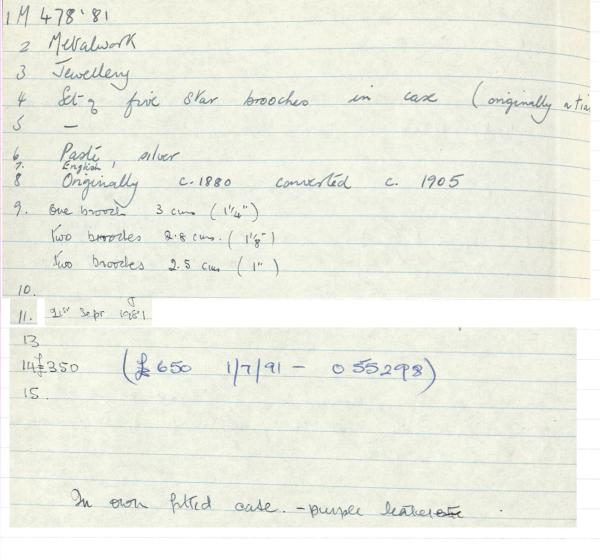 1 M 478'81
2 Metalwork
3 Jewellery
4 Set of five star brooches in case (originally a tia
5 —
6 Paste, silver
7. English
8 Originally c.1880 converted c. 1905
9. One brooch 3 cms (1¼")
Two brooches 2.8 cms. (1⅛")
Two brooches 2.5 cms (1")
10.
11. 21st Sept 1981
13
14 £350 (£650 1/7/91 – 055298)
15.
In own fitted case. – purple leather